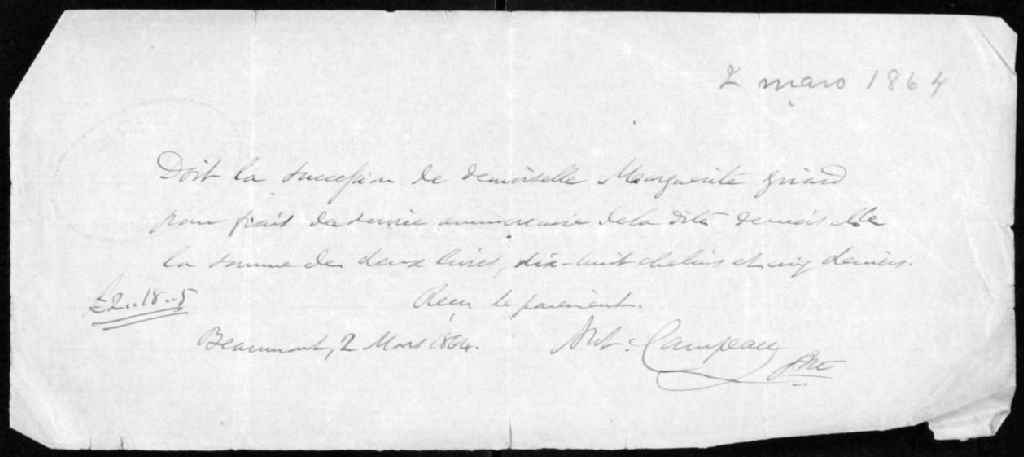 2 mars 1864
Doit la succession de demoiselle Marguerite Girard
pour frais du service anniversaire de la dite demoiselle
la somme de deux livres, dix-huit chelins et cinq deniers.
£2..18..5
Recu le paiement.
Beaumont, 2 Mars 1864.
Ant. Campeau Ptre